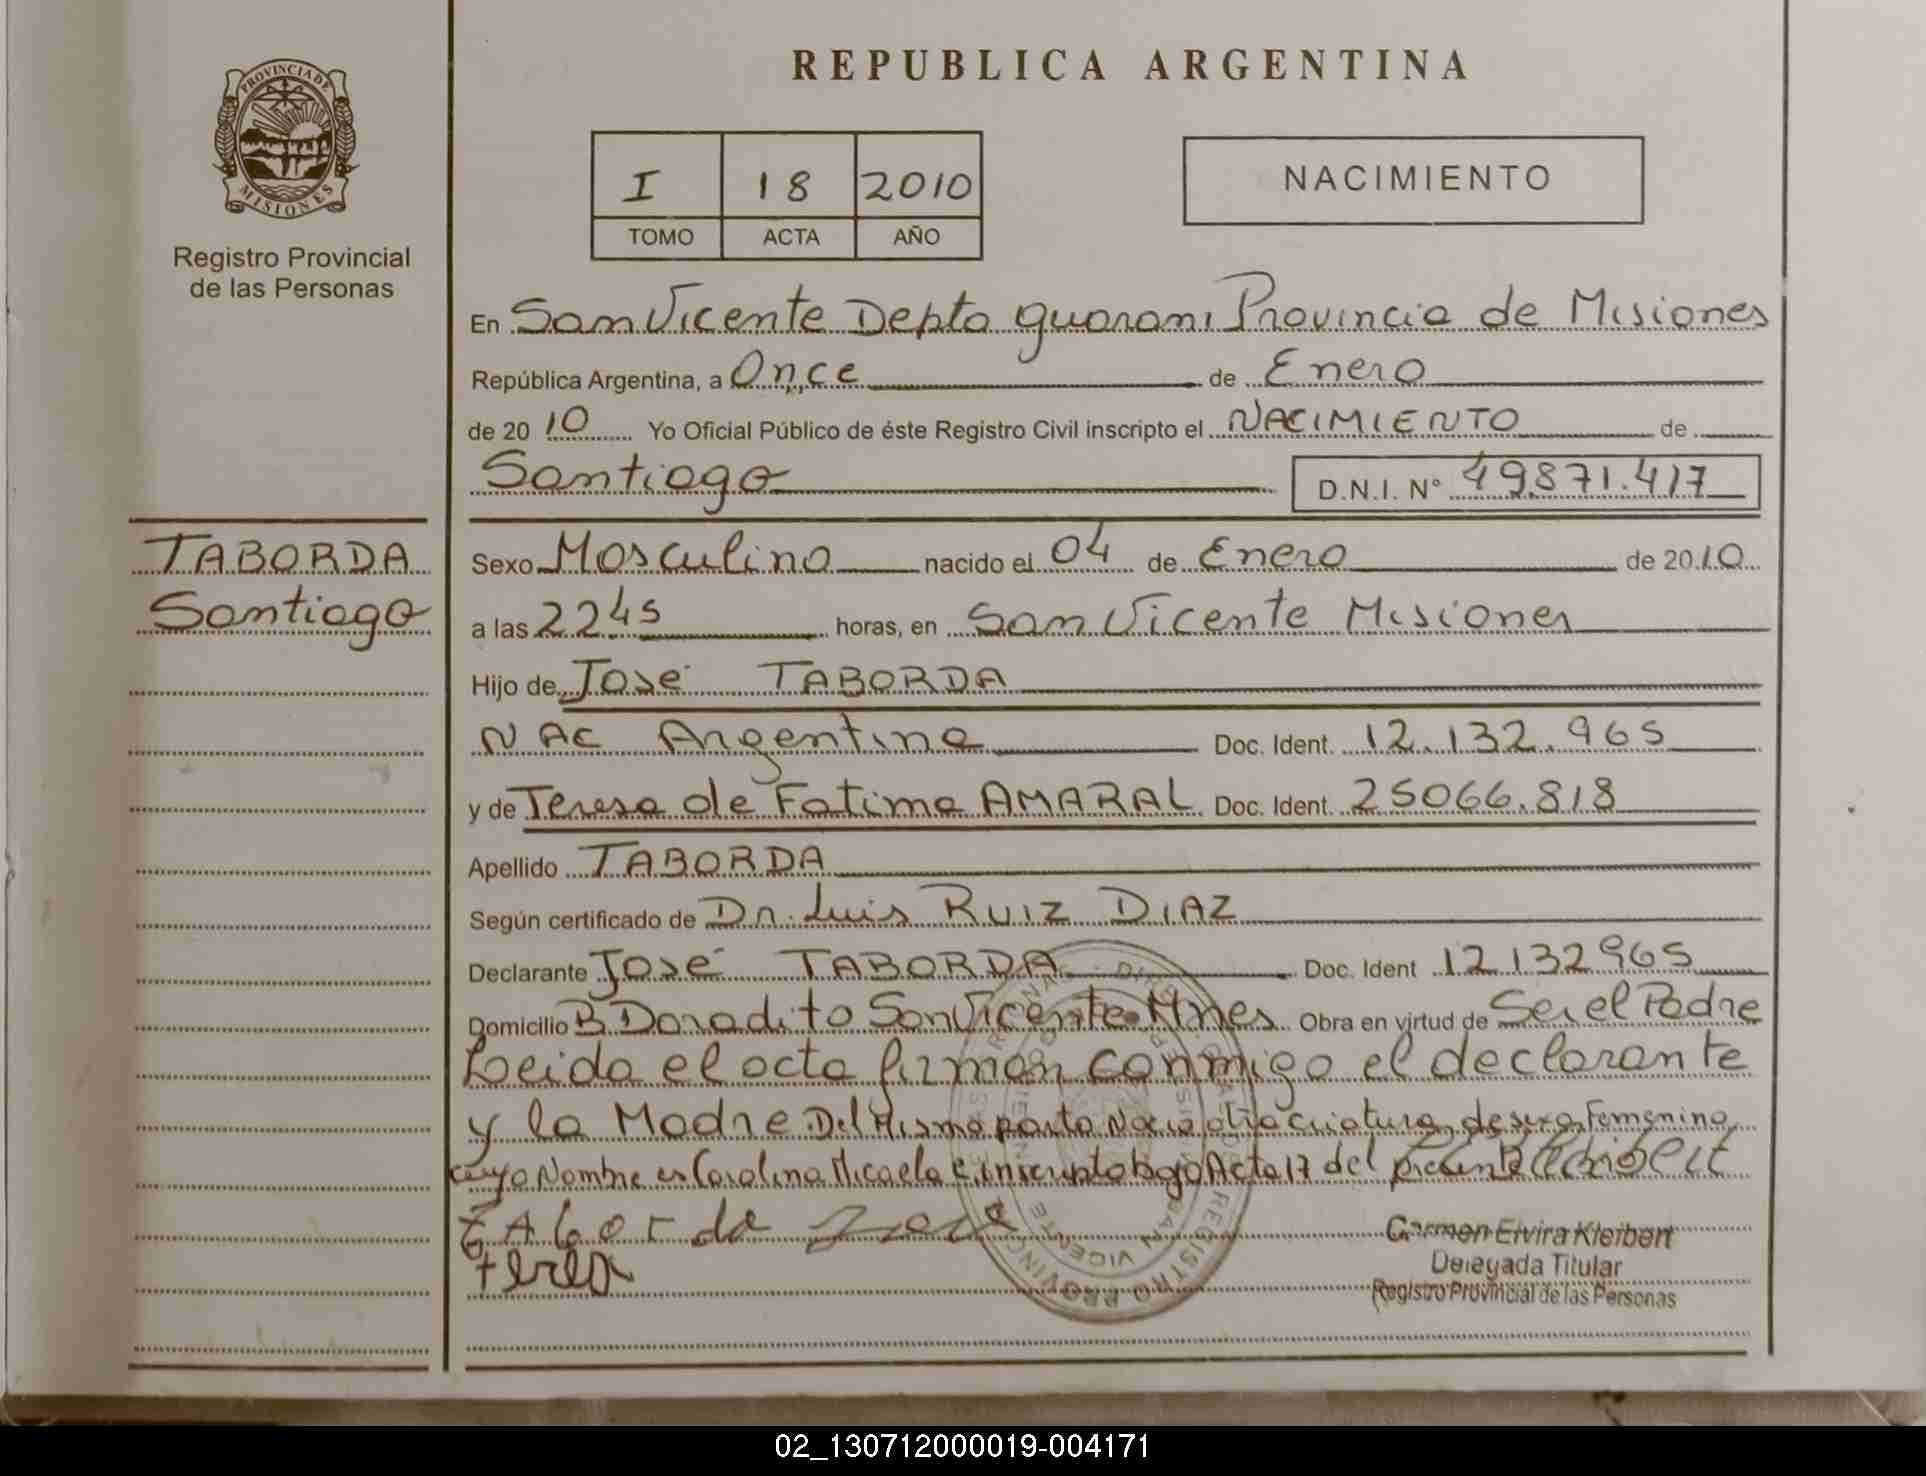 REPUBLICA ARGENTINA
PROVINCIA DE
MISIONES
Registro Provincial
de las Personas
I 18 2010
TOMO ACTA AÑO
NACIMIENTO
En San Vicente Depto guarani Provincia de Misiones
República Argentina, a Once de Enero
de 2010 Yo Oficial Público de éste Registro Civil inscripto el NACIMIENTO de
Santiago D.N.I. N° 49.871.417
TABORDA
Santiago
Sexo Masculino nacido el 04 de Enero de 2010
a las 2245 horas, en San Vicente Misiones
Hijo de José TABORDA
NAC Argentina Doc. Ident. 12.132.965
y de Teresa de Fatima AMARAL Doc. Ident. 25066.818
Apellido TABORDA
Según certificado de Dr. Luis RUIZ DIAZ
Declarante José TABORDA Doc. Ident 12132965
Domicilio B Doradito San Vicente Mnes Obra en virtud de Ser el Padre
Leida el acta firman conmigo el declarante
y la Madre Del Mismo parto Nacio otra criatura de sexo Femenino
cuyo Nombre es Carolina Micaela e inscripto bajo Acta 17 del presente
Taborda José
teresa
Carmen Elvira Kleibert
Delegada Titular
Registro Provincial de las Personas
SAN VICENTE
02_130712000019-004171